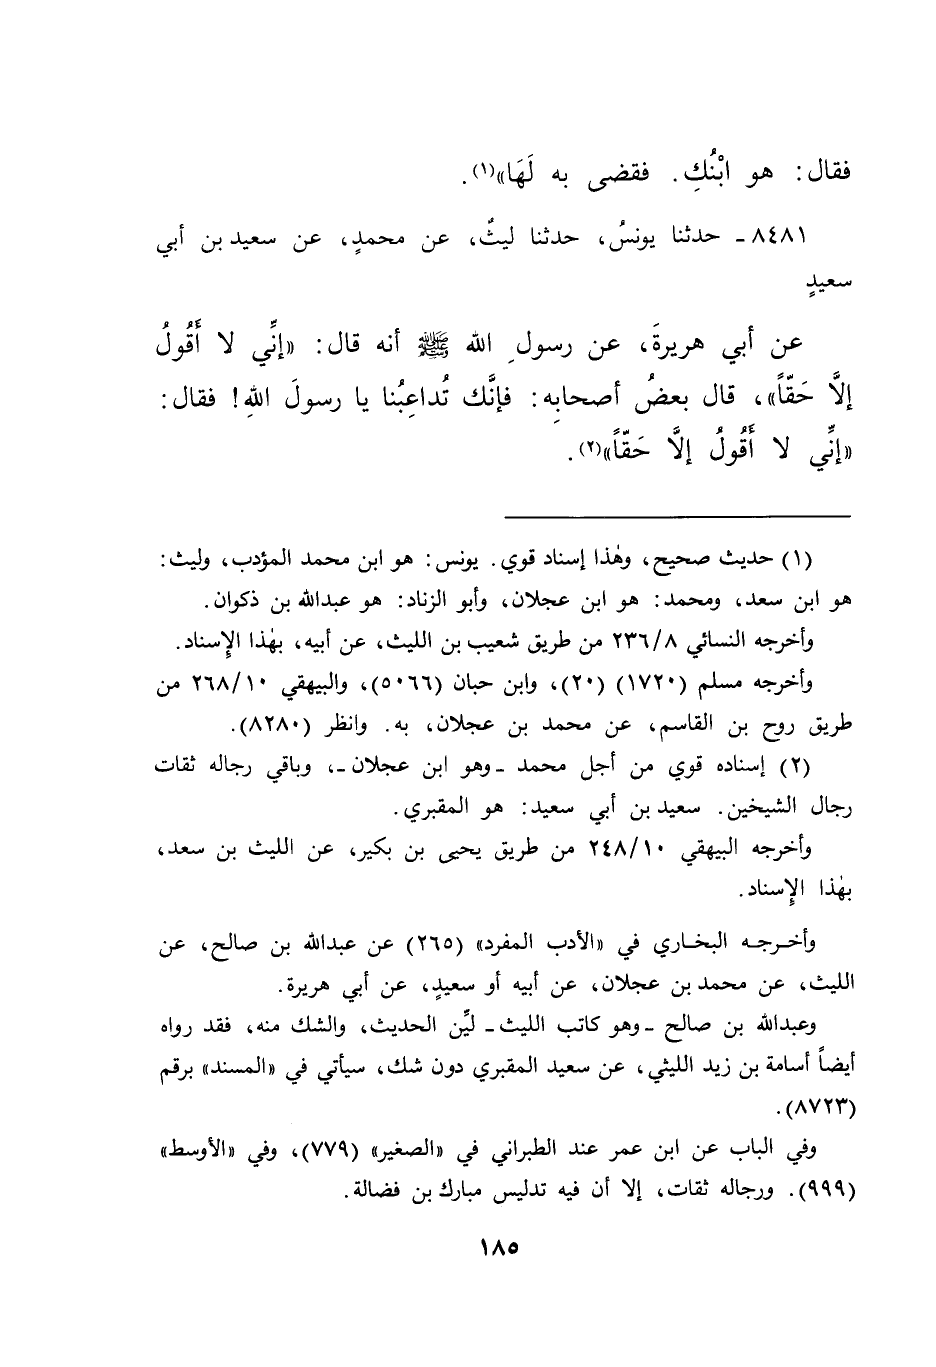 فقال: هو ابْنُكِ. فقضى به لَهَا»(١).
٨٤٨١ ـ حدثنا يونسُ، حدثنا ليثٌ، عن محمدٍ، عن سعيد بن أبي
سعيدٍ
عن أبي هريرةَ، عن رسولِ الله ﷺ أنه قال: «إنِّي لا أَقُولُ
إلَّا حَقّاً»، قال بعضُ أصحابِه: فإنَّك تُداعِبُنا يا رسولَ اللهِ! فقال:
«إنِّي لا أَقُولُ إلَّا حَقّاً»(٢).
(١) حديث صحيح، وهٰذا إسناد قوي. يونس: هو ابن محمد المؤدب، وليث:
هو ابن سعد، ومحمد: هو ابن عجلان، وأبو الزناد: هو عبدالله بن ذكوان.
وأخرجه النسائي ٢٣٦/٨ من طريق شعيب بن الليث، عن أبيه، بهٰذا الإِسناد.
وأخرجه مسلم (١٧٢٠) (٢٠)، وابن حبان (٥٠٦٦)، والبيهقي ٢٦٨/١٠ من
طريق روح بن القاسم، عن محمد بن عجلان، به. وانظر (٨٢٨٠).
(٢) إسناده قوي من أجل محمد ـ وهو ابن عجلان ـ، وباقي رجاله ثقات
رجال الشيخين. سعيد بن أبي سعيد: هو المقبري.
وأخرجه البيهقي ٢٤٨/١٠ من طريق يحيى بن بكير، عن الليث بن سعد،
بهٰذا الإِسناد.
وأخرجه البخاري في «الأدب المفرد» (٢٦٥) عن عبدالله بن صالح، عن
الليث، عن محمد بن عجلان، عن أبيه أو سعيدٍ، عن أبي هريرة.
وعبدالله بن صالح ـ وهو كاتب الليث ـ ليِّن الحديث، والشك منه، فقد رواه
أيضاً أسامة بن زيد الليثي، عن سعيد المقبري دون شك، سيأتي في «المسند» برقم
(٨٧٢٣).
وفي الباب عن ابن عمر عند الطبراني في «الصغير» (٧٧٩)، وفي «الأوسط»
(٩٩٩). ورجاله ثقات، إلا أن فيه تدليس مبارك بن فضالة.
١٨٥